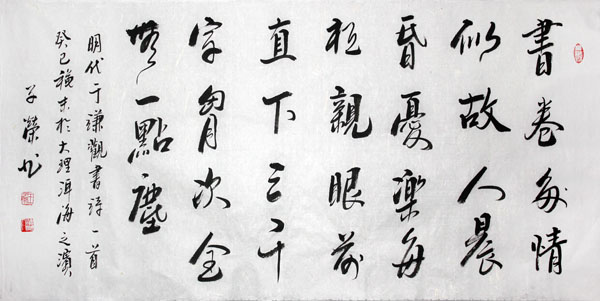 書卷多情
似故人晨
昏憂樂每
相親眼前
直下三千
字胷次全
無一點塵
明代于謙觀書詩一首
癸巳穐末於大理洱海之濱
子榮书